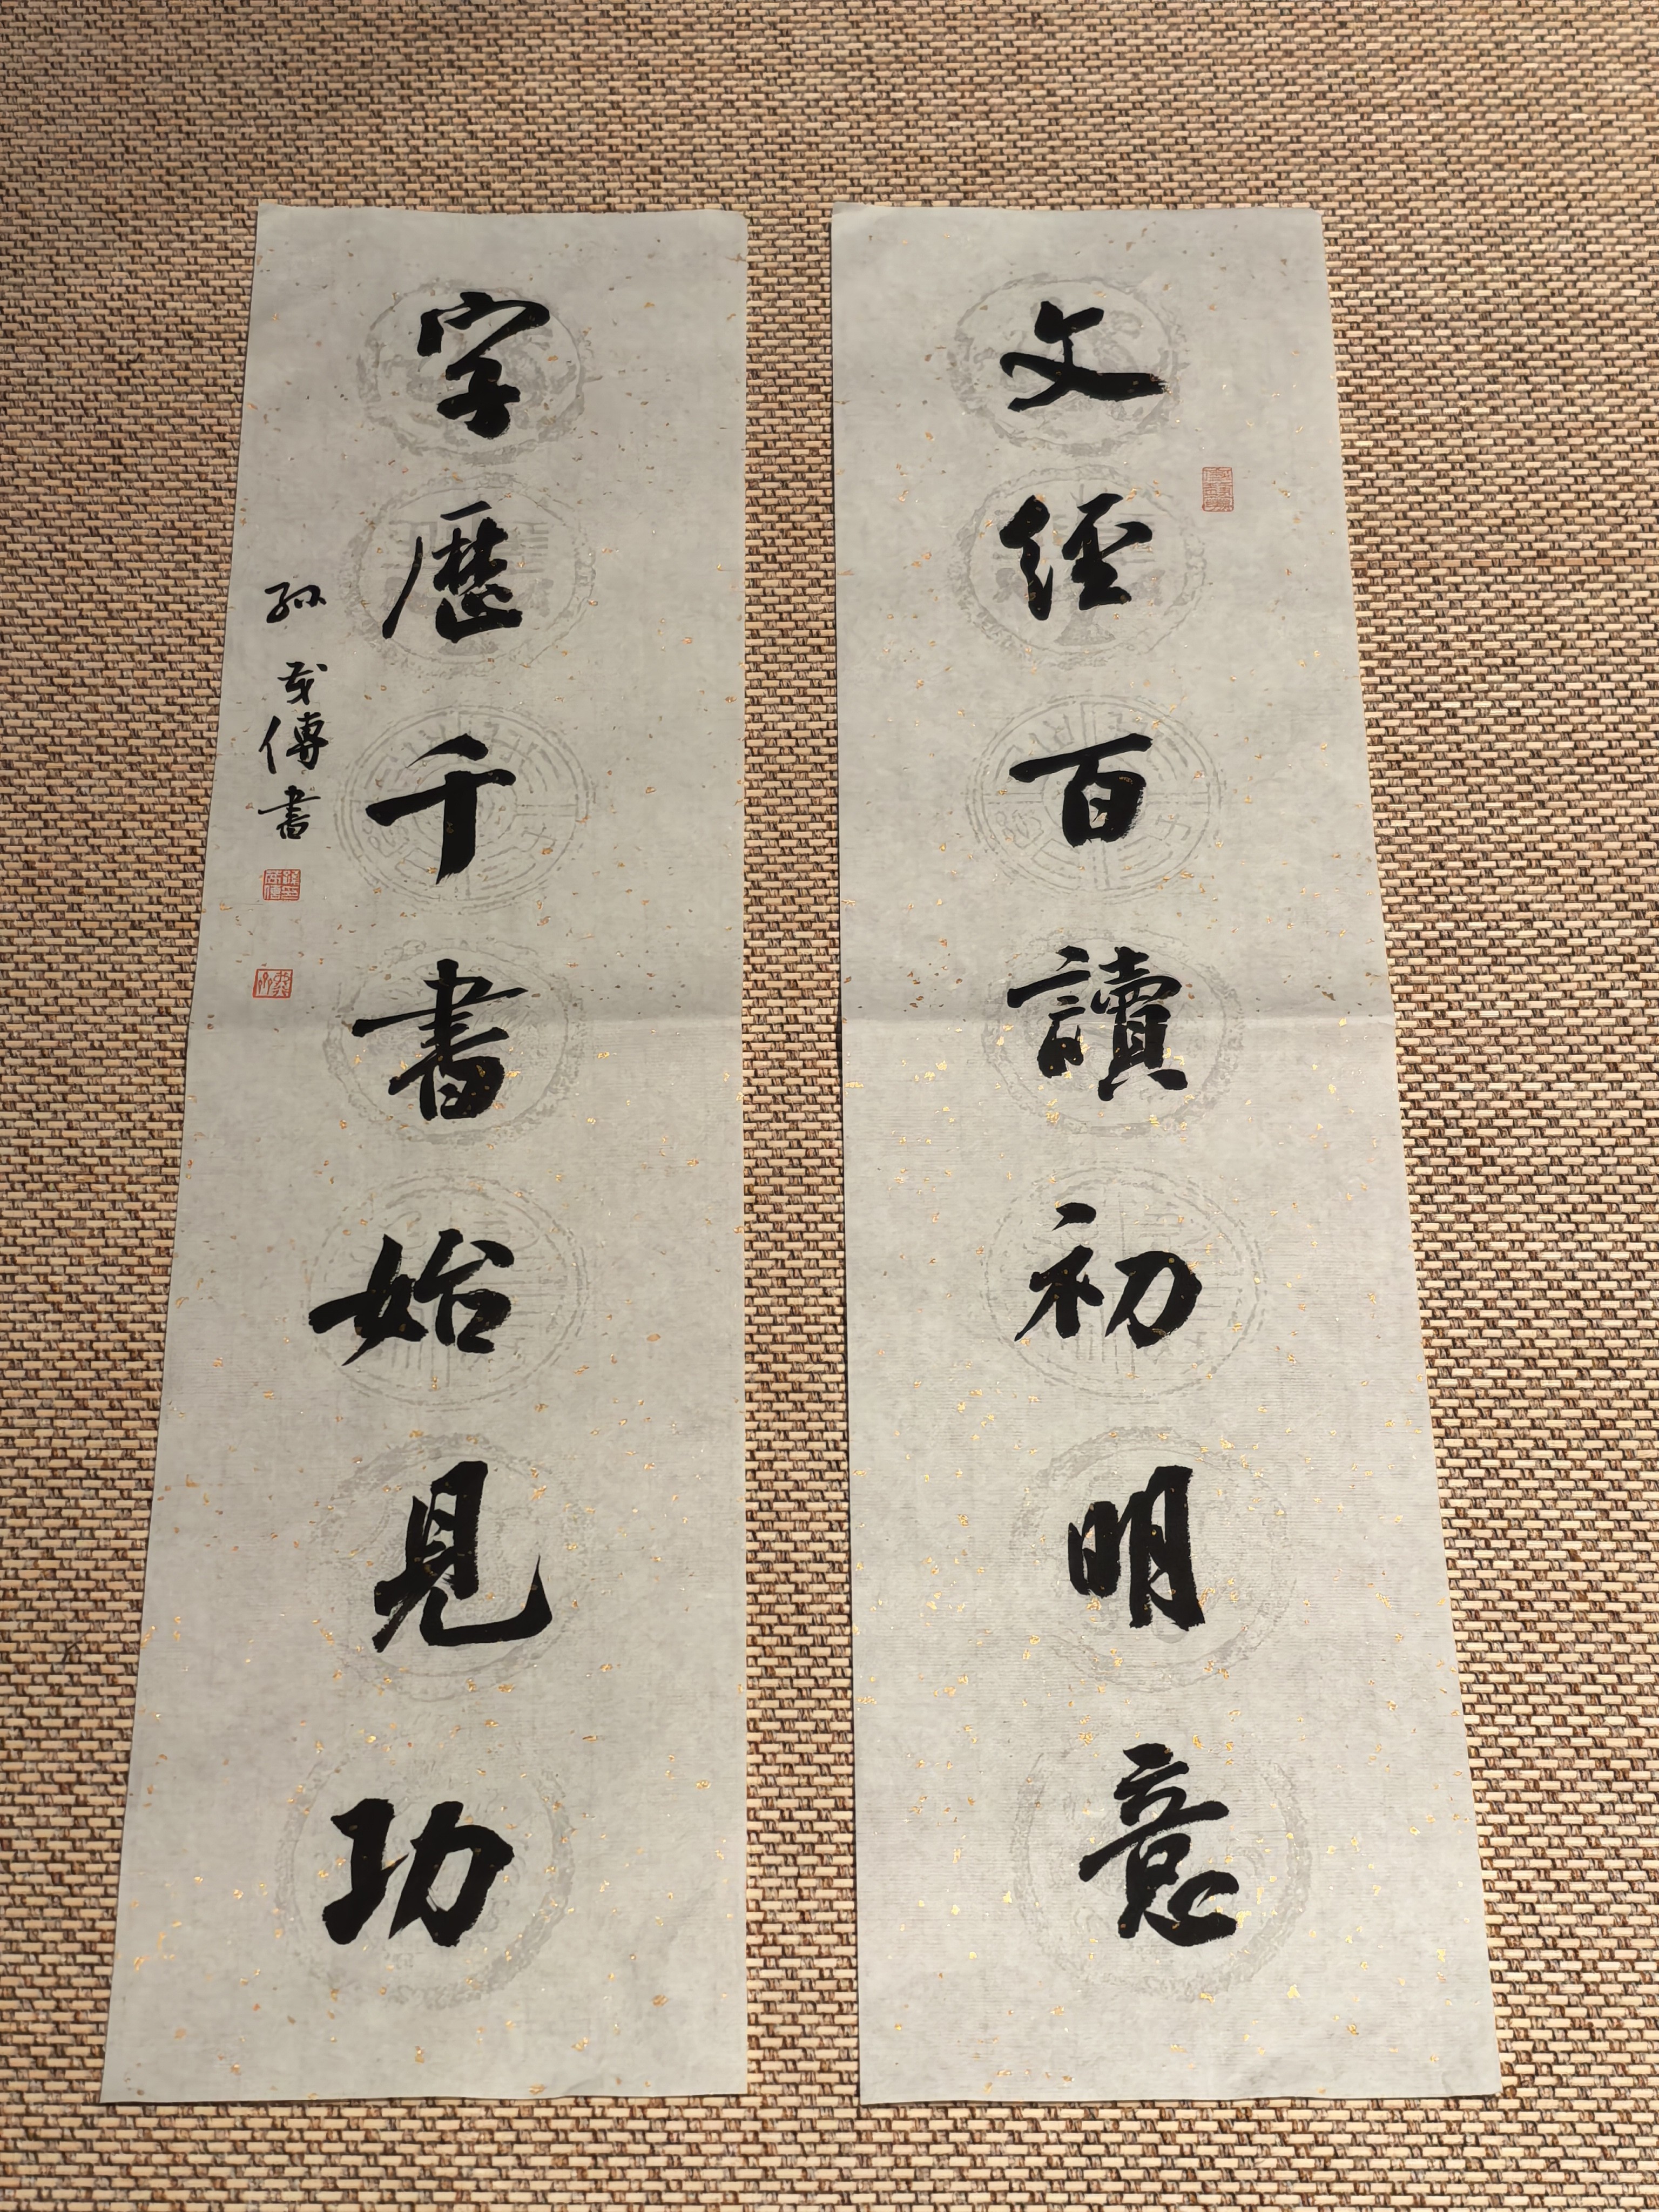 文經百讀初明意
字歷千書始見功
孫 傳書